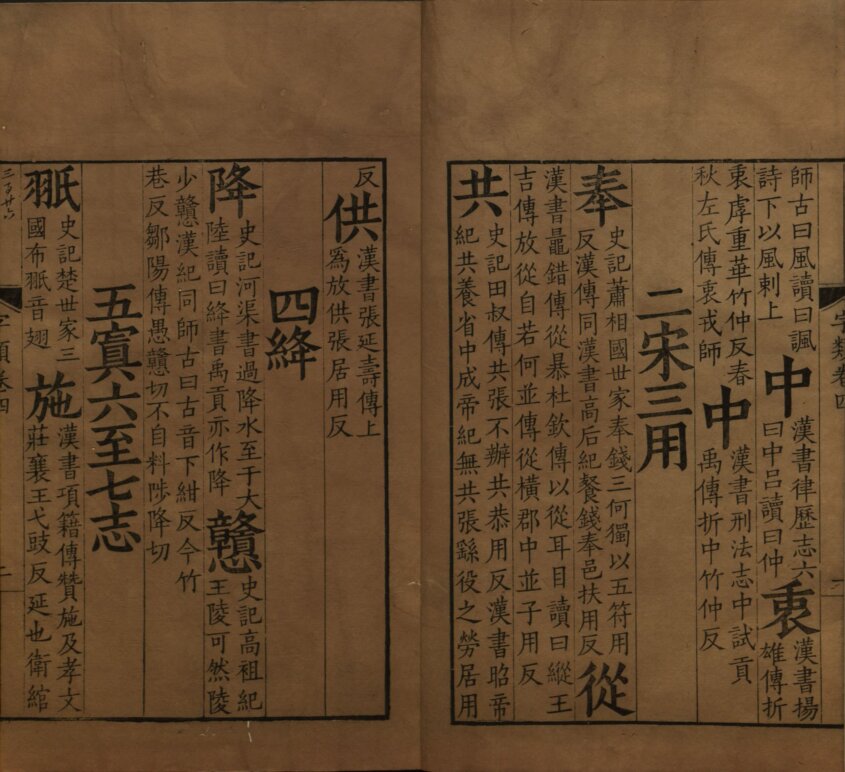 字類卷四
二
師古曰風讀曰諷
詩下以風刺上
中
漢書律歷志六
曰中呂讀曰仲
衷
漢書揚
雄傳折
衷虖重華竹仲反春
秋左氏傳衷戎師
中
漢書刑法志中試貢
禹傳折中竹仲反
二宋三用
奉
史記蕭相國世家奉錢三何獨以五符用
反漢傳同漢書高后紀餐錢奉邑扶用反
從
漢書鼂錯傳從暴杜欽傳以從耳目讀曰縱王
吉傳放從自若何並傳從橫郡中並子用反
共
史記田叔傳共張不辦共恭用反漢書昭帝
紀共養省中成帝紀無共張繇役之勞居用
反
供
漢書張延壽傳上
爲放供張居用反
四絳
降
史記河渠書過降水至于大
陸讀曰絳書禹貢亦作降
戇
史記高祖紀
王陵可然陵
少戇漢紀同師古曰古音下紺反今竹
巷反鄒陽傳愚戇切不自料陟降切
五寘六至七志
史記楚世家三
國布 音翅
施
漢書項籍傳贊施及孝文
莊襄王弋豉反延也衛綰
字類卷四
二